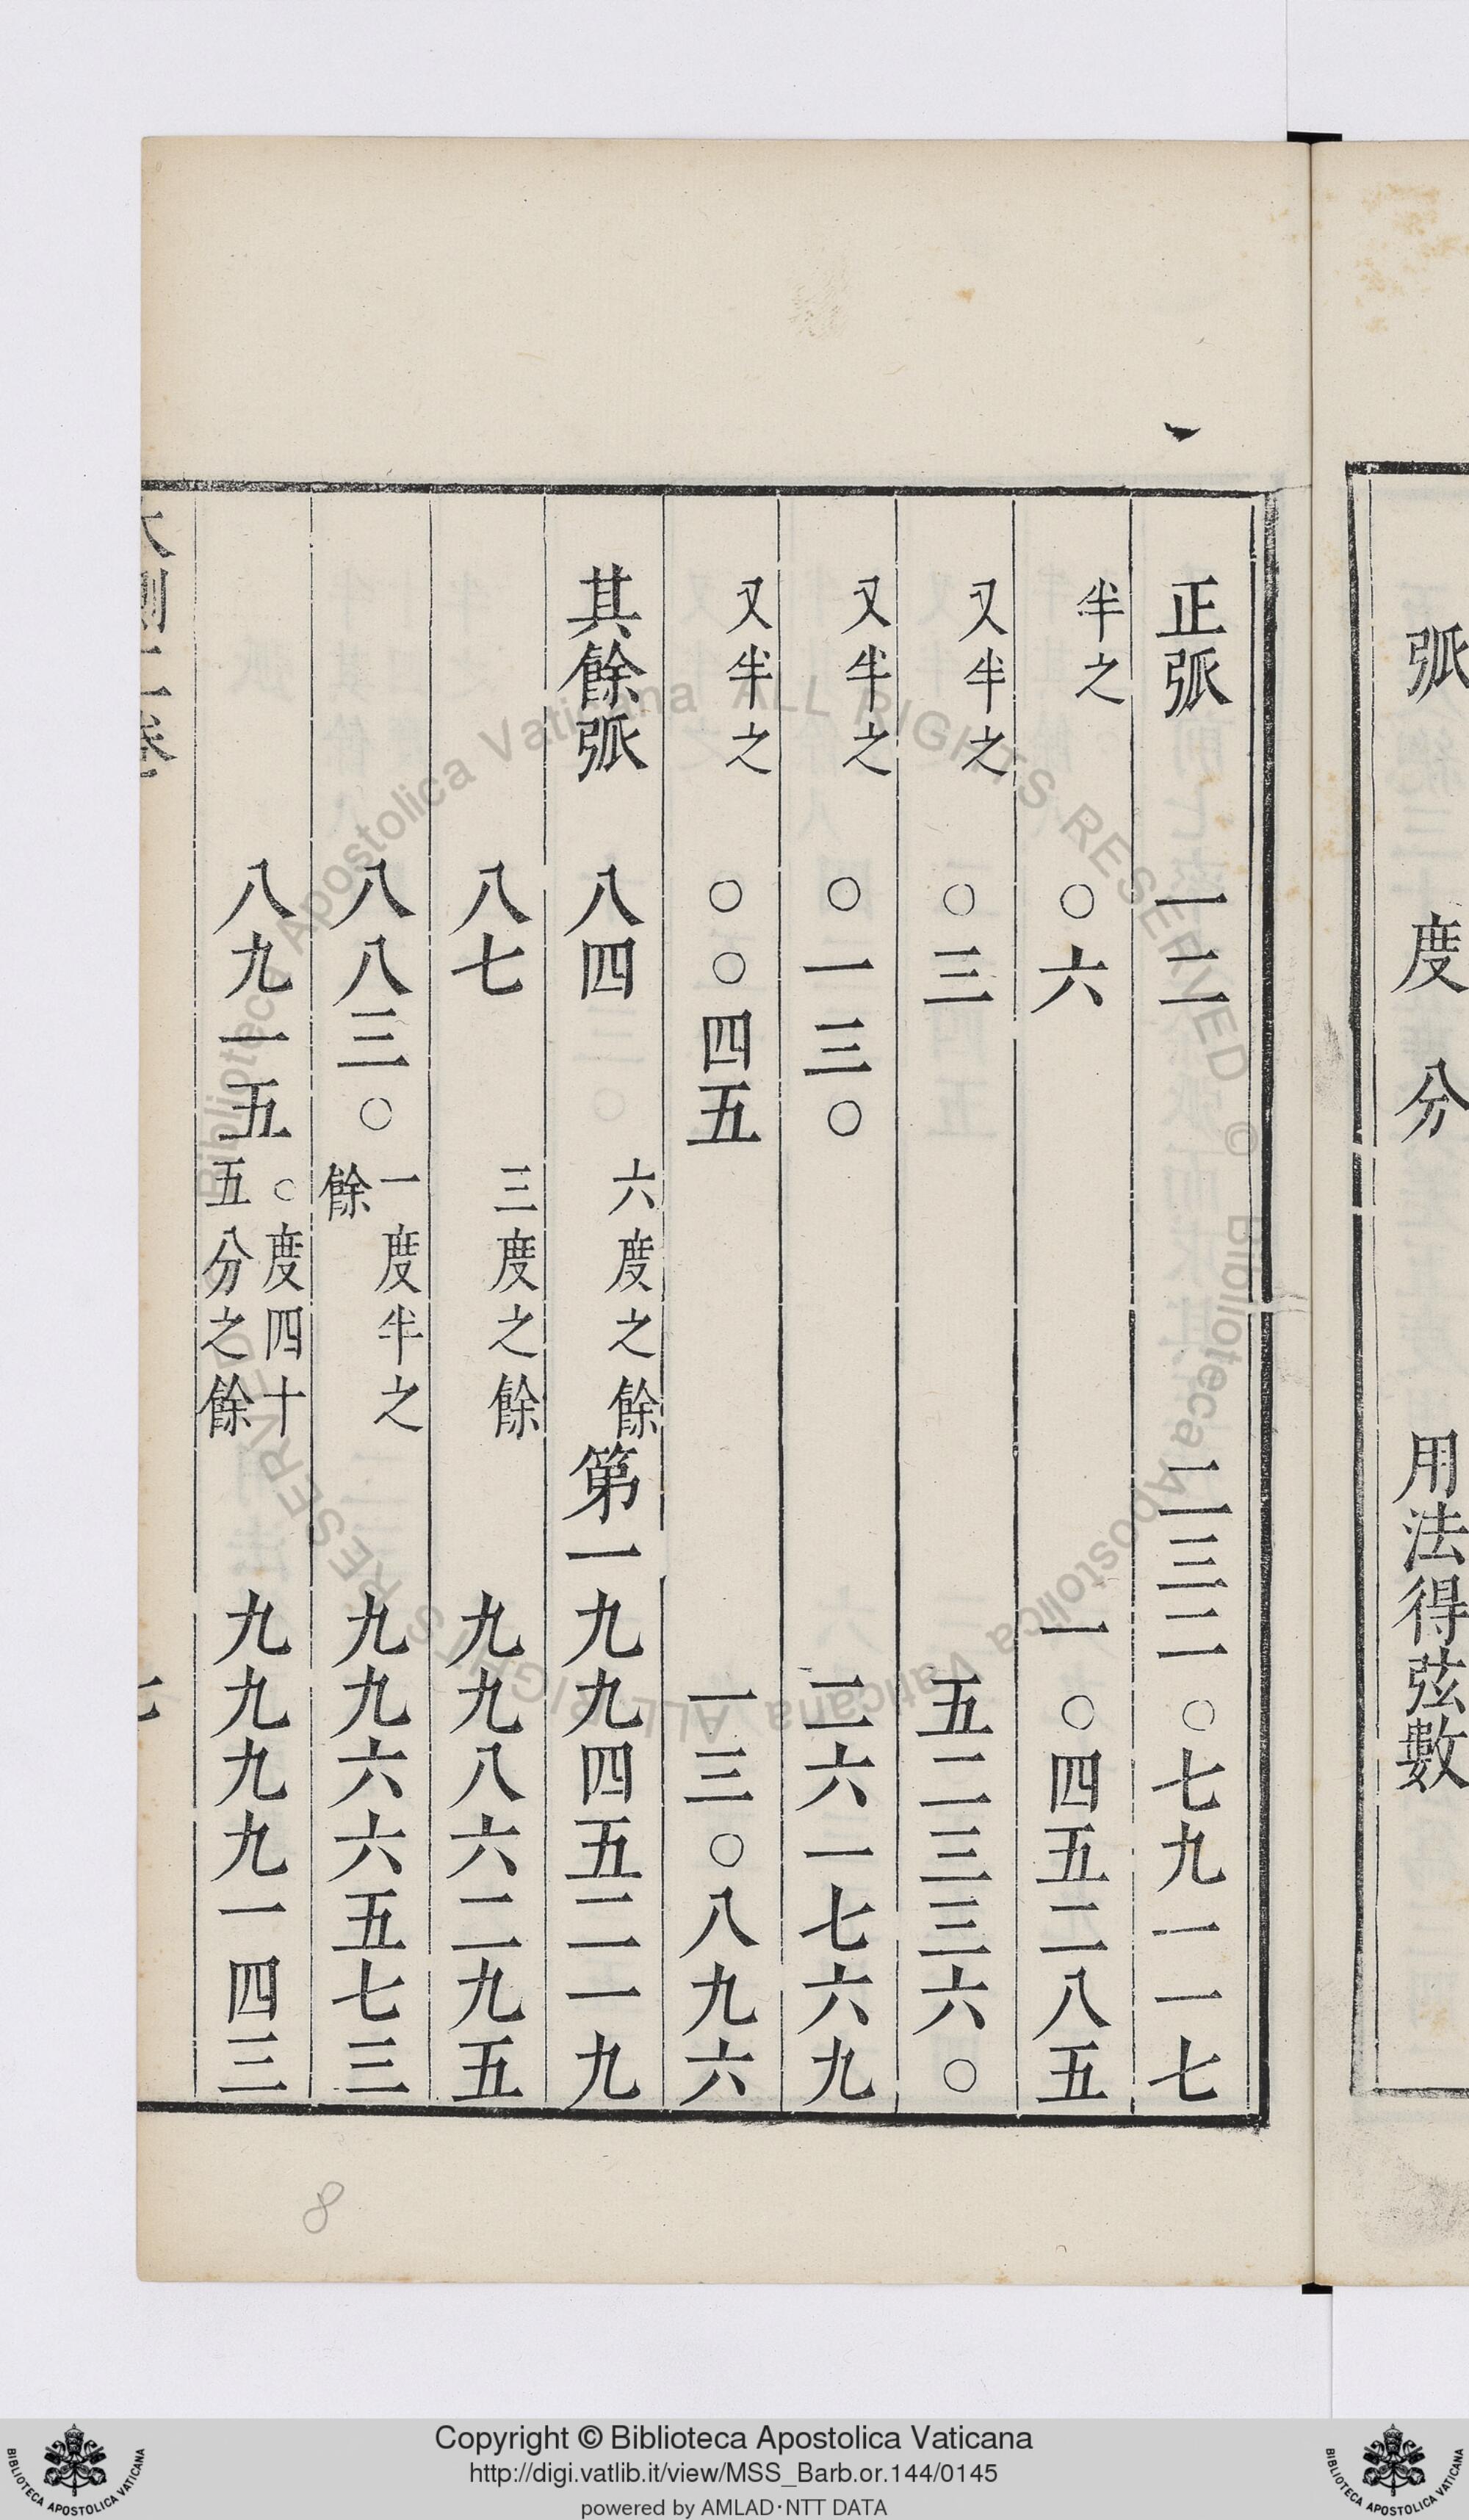 弧 度 分 用法得弦數
正弧 一二 二三二〇七九一一七
半之 〇六 一〇四五二八五
又半之 〇三 五二三三六〇
又半之 〇一三〇 二六一七六九
又半之 〇〇四五 一三〇八九六
其餘弧 八四 六度之餘 第一 九九四五二一九
八七 三度之餘 九九八六二九五
八八三〇 一度半之餘 九九六六五七三
八九一五 〇度四十五分之餘 九九九九一四三
大測二卷 七
8
Biblioteca Apostolica Vaticana ALL RIGHTS RESERVED © Biblioteca Apostolica Vaticana ALL RIGHTS RESERVED
Copyright © Biblioteca Apostolica Vaticana
http://digi.vatlib.it/view/MSS_Barb.or.144/0145
powered by AMLAD·NTT DATA
BIBLIOTECA APOSTOLICA VATICANA
BIBLIOTECA APOSTOLICA VATICANA